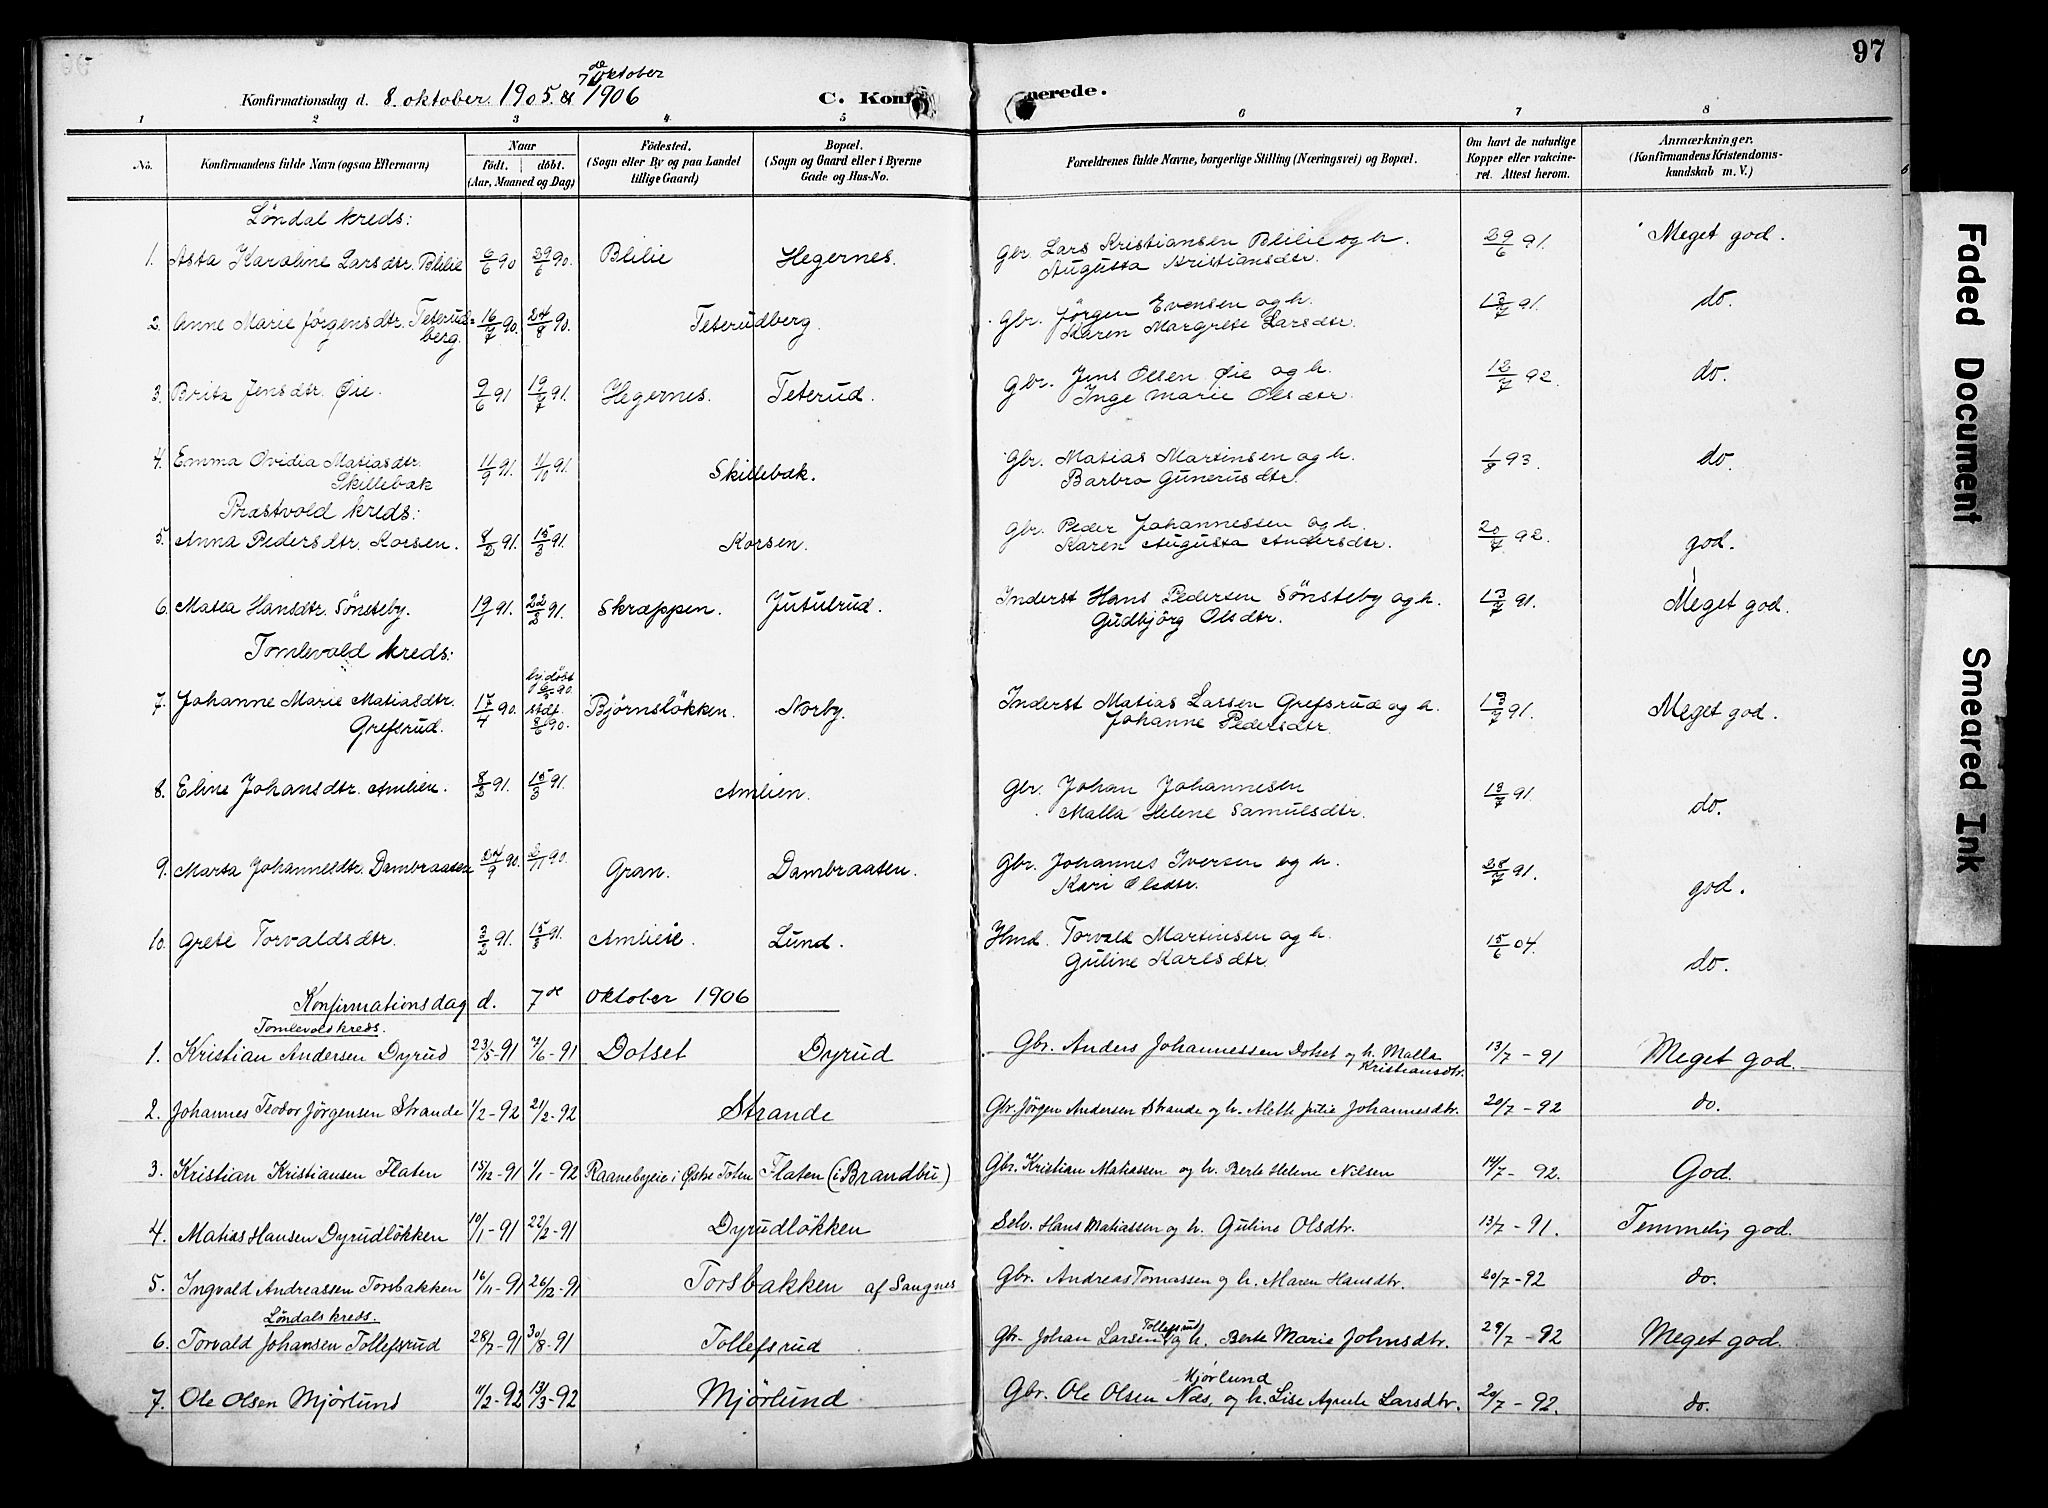 97
Konfirmationsdag d. 8. oktober. 1905. & 7de oktober 1906
C. Konf nerede.
1 2 3 4 5 6 7 8
No.
Konfirmandens fulde Navn (ogsaa Efternavn)
Naar
födt. döbt.
(Aar, Maaned og Dag)
Födested.
(Sogn eller By og paa Landet
tillige Gaard)
Bopæl.
(Sogn og Gaard eller i Byerne
Gade og Hus-No.
Forældrenes fulde Navne, borgerlige Stilling (Næringsvei) og Bopæl.
Om havt de naturlige
Kopper eller vakcine-
ret. Attest herom.
Anmærkninger.
(Konfirmandens Kristendoms-
kundskab m. V.)
Løndal kreds:
1. Asta Karoline Larsdtr. Blilie 6/6 90 29/6 90. Blilie Hegernes. Gbr. Lars Kristiansen Blilie og h. Augusta Kristiansdtr. 29/6 91. Meget god.
2. Anne Marie Jørgensdtr. Teterudberg. 16/7 90. 24/8 90. Teterudberg. Gbr. Jørgen Evensen og h. Karen Margrete Larsdtr. 13/7 91. do.
3. Brita Jensdtr. Øie. 9/6 91 19/7 91. Hegernes. Teterud. Gbr. Jens Olsen Øie og h. Inge Marie Olsdtr. 12/7 92. do.
4. Emma Ovidia Matiasdtr. Skillebæk 11/9 91. 11/10 91. Skillebæk. Gbr. Matias Martinsen og h. Barbro Gunerusdtr. 1/8 93. do.
Præstvold kreds:
5. Anna Pedersdtr. Korsen. 8/2 91. 15/3 91. Korsen. Gbr. Peder Johannessen og h. Karen Augusta Andersdtr. 20/7 92. god.
6. Matea Hansdtr. Sønsteby. 19/1 91. 22/2 91. Skræppen. Jutulrud. Inderst Hans Pedersen Sønsteby og h. Gudbjörg Olsdtr. 13/7 91. Meget god.
Tomlevold kreds:
7. Johanne Marie Matiasdtr. Grefsrud. 17/4 90. hj.døbt 90. stdf. 8/6 90. Bjørnsløkken. Norby. Inderst Matias Larsen Grefsrud og h. Johanne Pedersdtr. 13/7 91. Meget god.
8. Eline Johansdtr. Amlien. 8/2 91. 15/3 91. Amlien. Gbr. Johan Johannesen Malla Helene Samulsdtr. 13/7 91. do.
9. Marta Johannesdtr. Dambraaten 24/9 90. 2/11 90. Gran. Dambraaten. Gbr. Johannes Iversen og h. Kari Olsdtr. 28/7 91. god.
10. Grete Torvaldsdtr. 3/2 91. 15/3 91. Amlieie. Lund. Hmd. Torvald Martinsen og h. Guline Karlsdtr. 15/6 04. do.
Konfirmationsdag d. 7de oktober 1906
Tomlevold kreds.
1. Kristian Andersen Dyrud 23/5-91 7/6-91 Dotset Dyrud Gbr. Anders Johannessen Dotset og h. Malla Kristiansdtr. 13/7-91 Meget god.
2. Johannes Teodor Jörgensen Strande 1/2-92 21/2-92 Strande Gbr. Jörgen Andersen Strande og h. Alette Julie Johannesdtr. 20/7-92 do.
3. Kristian Kristiansen Flaten 15/12-91 1/1-92 Raanebyeie i Østre Toten Flaten (i Brandbu) Gbr. Kristian Matiassen og h. Berte Helene Nilsen 14/7-92. God.
4. Matias Hansen Dyrudlökken 10/1-91 22/2-91 Dyrudlökken Selv. Hans Matiassen og h. Guline Olsdtr. 13/7-91. Temmelig god.
5. Ingvald Andreassen Torsbakken 16/11-91 26/12-91 Torsbakken af Sangnes Gbr. Andreas Tomassen og h. Maren Hansdtr. 20/7-92 do.
Löndals kreds.
6. Torvald Johansen Tollefsrud 28/7-91 30/8-91 Tollefsrud Gbr. Johan Larsen Tollefsrud og h. Berte Marie Johnsdtr. 29/7-92 Meget god.
7. Ole Olsen Mjörlund 11/2-92 13/3-92 Mjörlund Gbr. Ole Olsen Næs, Mjörlund og h. Lise Agnete Larsdtr. 20/7-92. do.
Faded Document
Smeared Ink